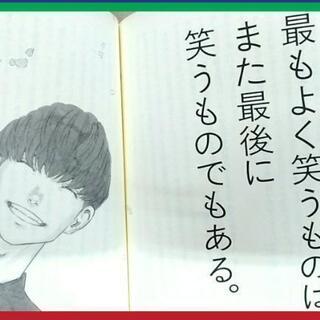 最もよく笑うものは
また最後に
笑うものでもある。